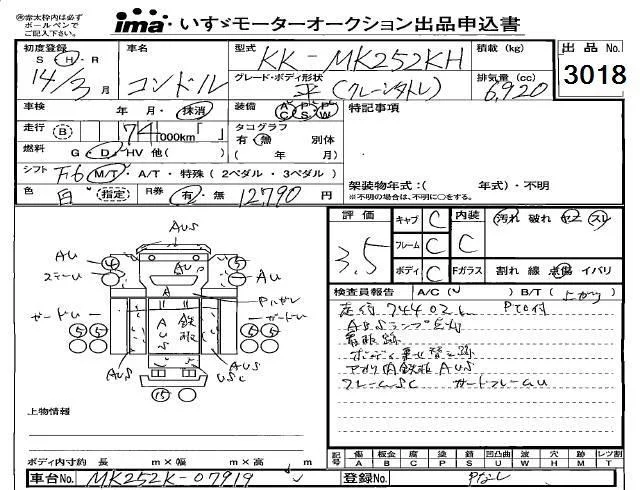 ※赤太枠内は必ず
ボールペンで
ご記入下さい。
ima いすゞモーターオークション出品申込書
初度登録 車名 型式 積載(kg) 出品No.
S・H・R 14/3月 コンドル KK-MK252KH 3018
グレード・ボディ形状 平(クレーンタトレ) 排気量(cc) 6,920
車検 年 月・抹消 装備 AC PS PW 特記事項
走行 B 74,000km タコグラフ 有・無 別体
燃料 G・D・HV 他( ) ( 年 月)
シフト F6 M/T・A/T・特殊(2ペダル・3ペダル)
架装物年式:( 年式)・不明
※不明の場合は、不明に○をする。
色 白 (指定) R券 有・無 12,790円
評価 3.5 キャブ C 内装 C 汚れ 破れ ヤニ スレ
フレーム C
ボディ C Fガラス 割れ 線 点傷 イバリ
検査員報告 A/C( ) B/T( )
走行74402k PTO付
ABSランプ点灯
看板跡
ボディ乗せ替え跡
アオリ内鉄板AUS
フレームSC ガードフレームU
AUS
AU
④
ステーU
⑤
ガードU
AU
A
AUS
鉄板
AUS
AUS
USC
⑤ ⑤
⑤ ⑤
⑮
上物情報
ボディ内寸約 長 m×幅 m×高 m
記号 傷 A 板金 B 腐 C 塗 P 錆 S 凹凸曲 U 波 W 穴 H 跡 M レツ割 T
車台No. MK252K-07919 登録No. Pなし